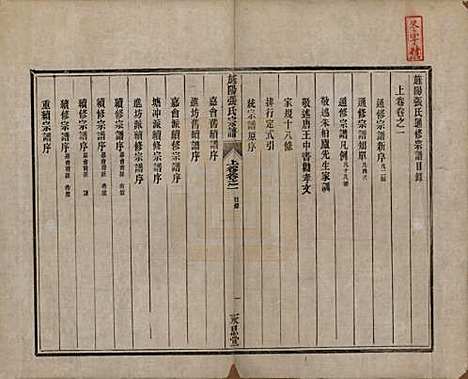 旌陽張氏通修宗譜目錄
上卷卷之一
通修宗譜新序
通修宗譜知單
通修宗譜凡例
敬述朱柏廬先生家訓
敬述唐王中書勸孝文
家規十八條
排行定式引
統宗譜原序
旌陽張氏宗譜
上卷卷之一
目錄
一
嘉會舊續譜序
進坊舊譜序
嘉會派續修宗譜序
塘沖派續修宗譜序
進坊派續修宗譜序
續修宗譜序
續修宗譜序
續修宗譜序
重續宗譜序